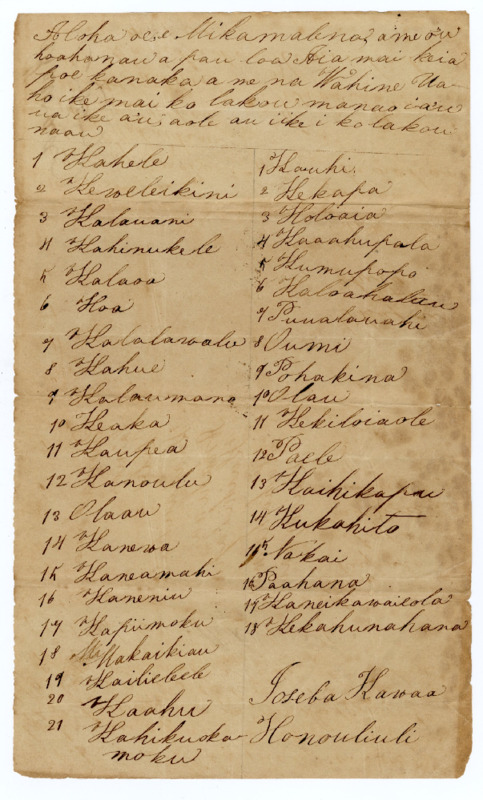 Aloha oe e Mikamalena, a me ou
hoahanau a pau loa Eia mai keia
poe kanaka a me na Wahine Ua
hoike mai ko lakou manao ia'u
ua ike au, aole au i ike i ko lakou
naau
1 Kahele
2 Keweleikini
3 Kalauani
4 Kahinukele
5 Kalaoa
6 Koa
7 Kalalawalu
8 Kahue
9 Kalaumana
10 Keaka
11 Kaupea
12 Kanoulu
13 Olaau
14 Kanewa
15 Kaneamahi
16 Kaneniu
17 Kapiimoku
18 Makaikiau
19 Kailielele
20 Kaahu
21 Kahikuoka-
moku
1 Kauhi
2 Kekapa
3 Holoaia
4 Kaaahupala
5 Kumupopo
6
7 Puualauahi
8 Oumi
9 Pohakina
10 Olau
11 Kekiloiaole
12 Paele
13 Kaihikapu
14 Kukahito
15 Nakai
16 Paahana
17 Kaneikawaieola
18 Kekahunahana
Ioseba Kawaa
Honouliuli